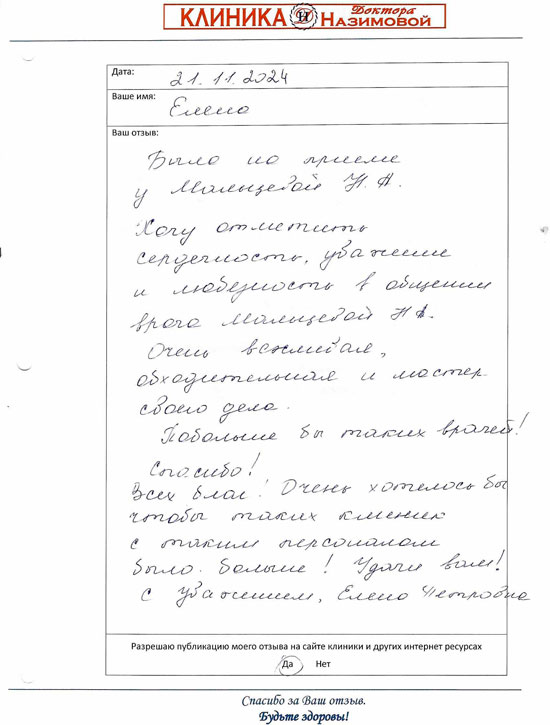 КЛИНИКА Доктора Назимовой
Дата: 21.11.2024
Ваше имя: Елена
Ваш отзыв:
Была на приеме
у Мальцевой Н.А.
Хочу отметить
сердечность, уважение
и любезность в общении
врача Мальцевой Н.А.
Очень вежливая,
обходительная и мастер
своего дела.
Побольше бы таких врачей!
Спасибо!
Всех благ! Очень хотелось бы
чтобы таких клиник
с таким персоналом
было больше! Удачи вам!
С уважением, Елена Петровна
Разрешаю публикацию моего отзыва на сайте клиники и других интернет ресурсах
Да Нет
Спасибо за Ваш отзыв.
Будьте здоровы!